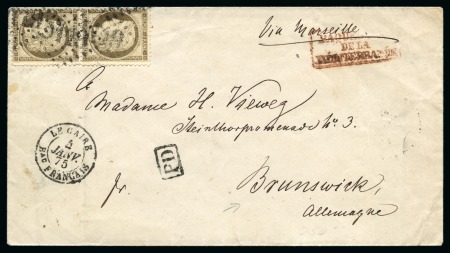 Via Marseille.
DE LA
A
Madame H. Vieweg
Steinthorpromenade No. 3.
LE CAIRE
4
JANV.
75
Bau FRANCAIS
PD
fr.
Brunswick,
Allemagne